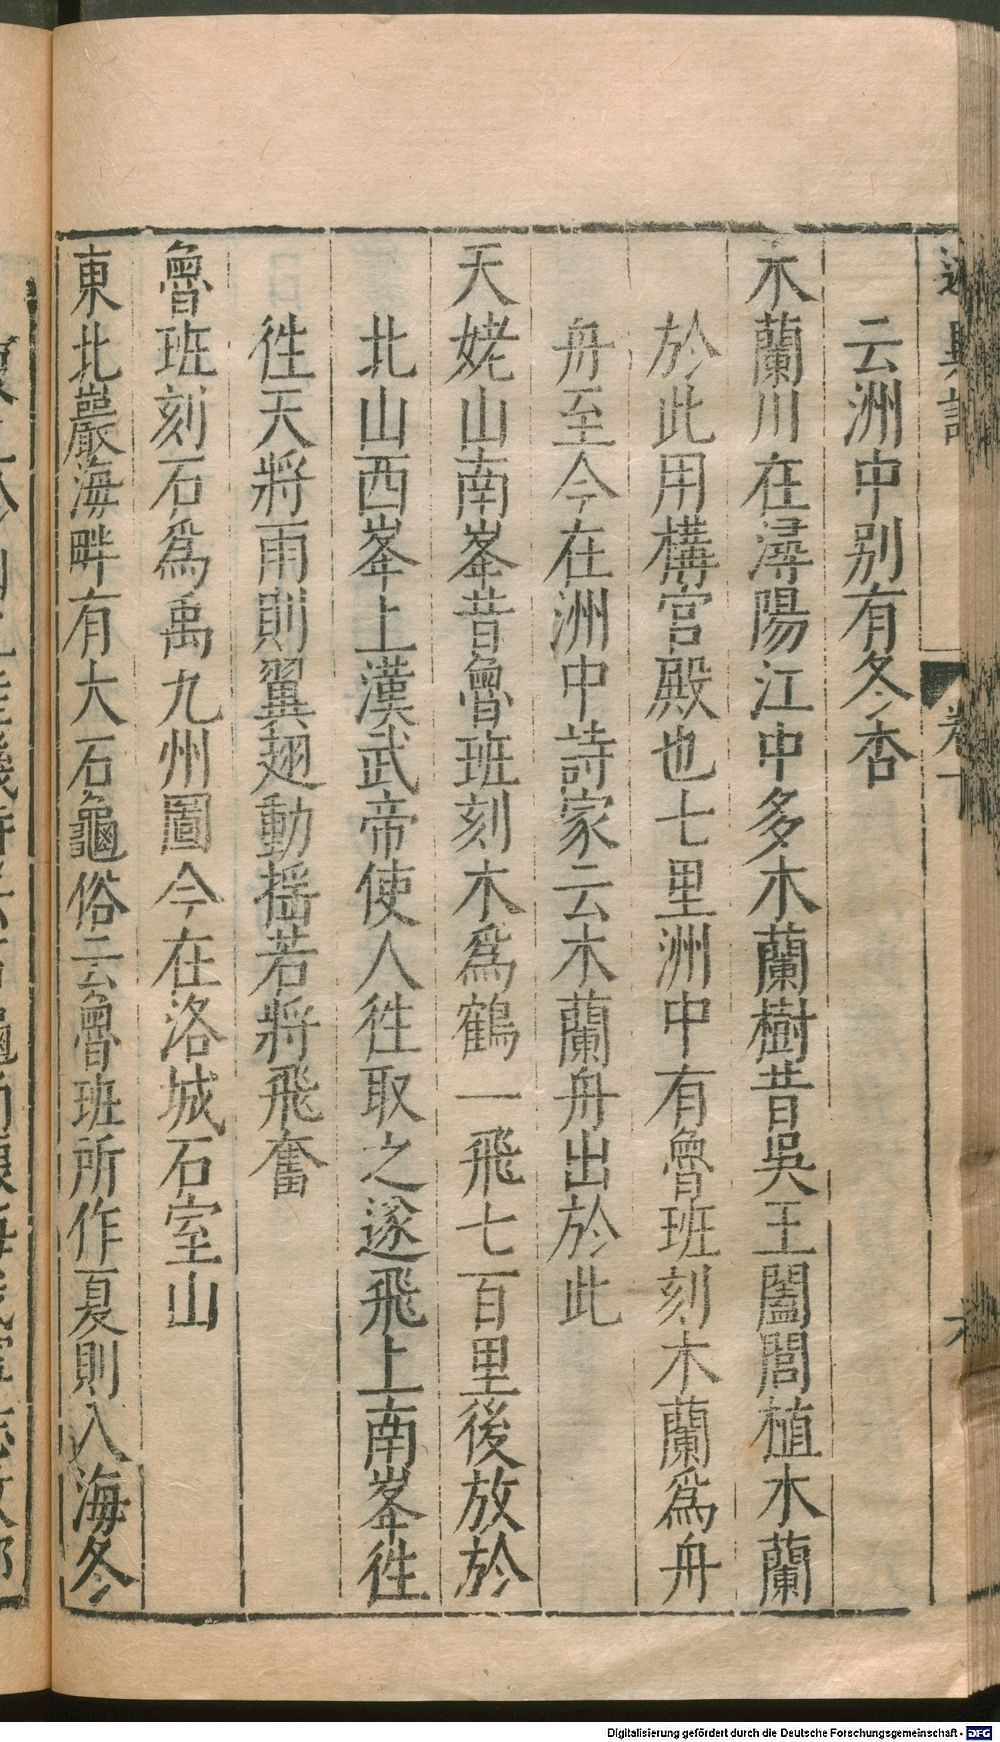 述異記
卷下
云洲中别有冬杏
木蘭川在潯陽江中多木蘭樹昔吳王闔閭植木蘭
於此用構宮殿也七里洲中有魯班刻木蘭爲舟
舟至今在洲中詩家云木蘭舟出於此
天姥山南峯昔魯班刻木爲鶴一飛七百里後放於
北山西峯上漢武帝使人徃取之遂飛上南峯徃
徃天將雨則翼翅動摇若將飛奮
魯班刻石爲禹九州圖今在洛城石室山
東北巖海畔有大石龜俗云魯班所作夏則入海冬
Digitalisierung gefördert durch die Deutsche Forschungsgemeinschaft - DFG